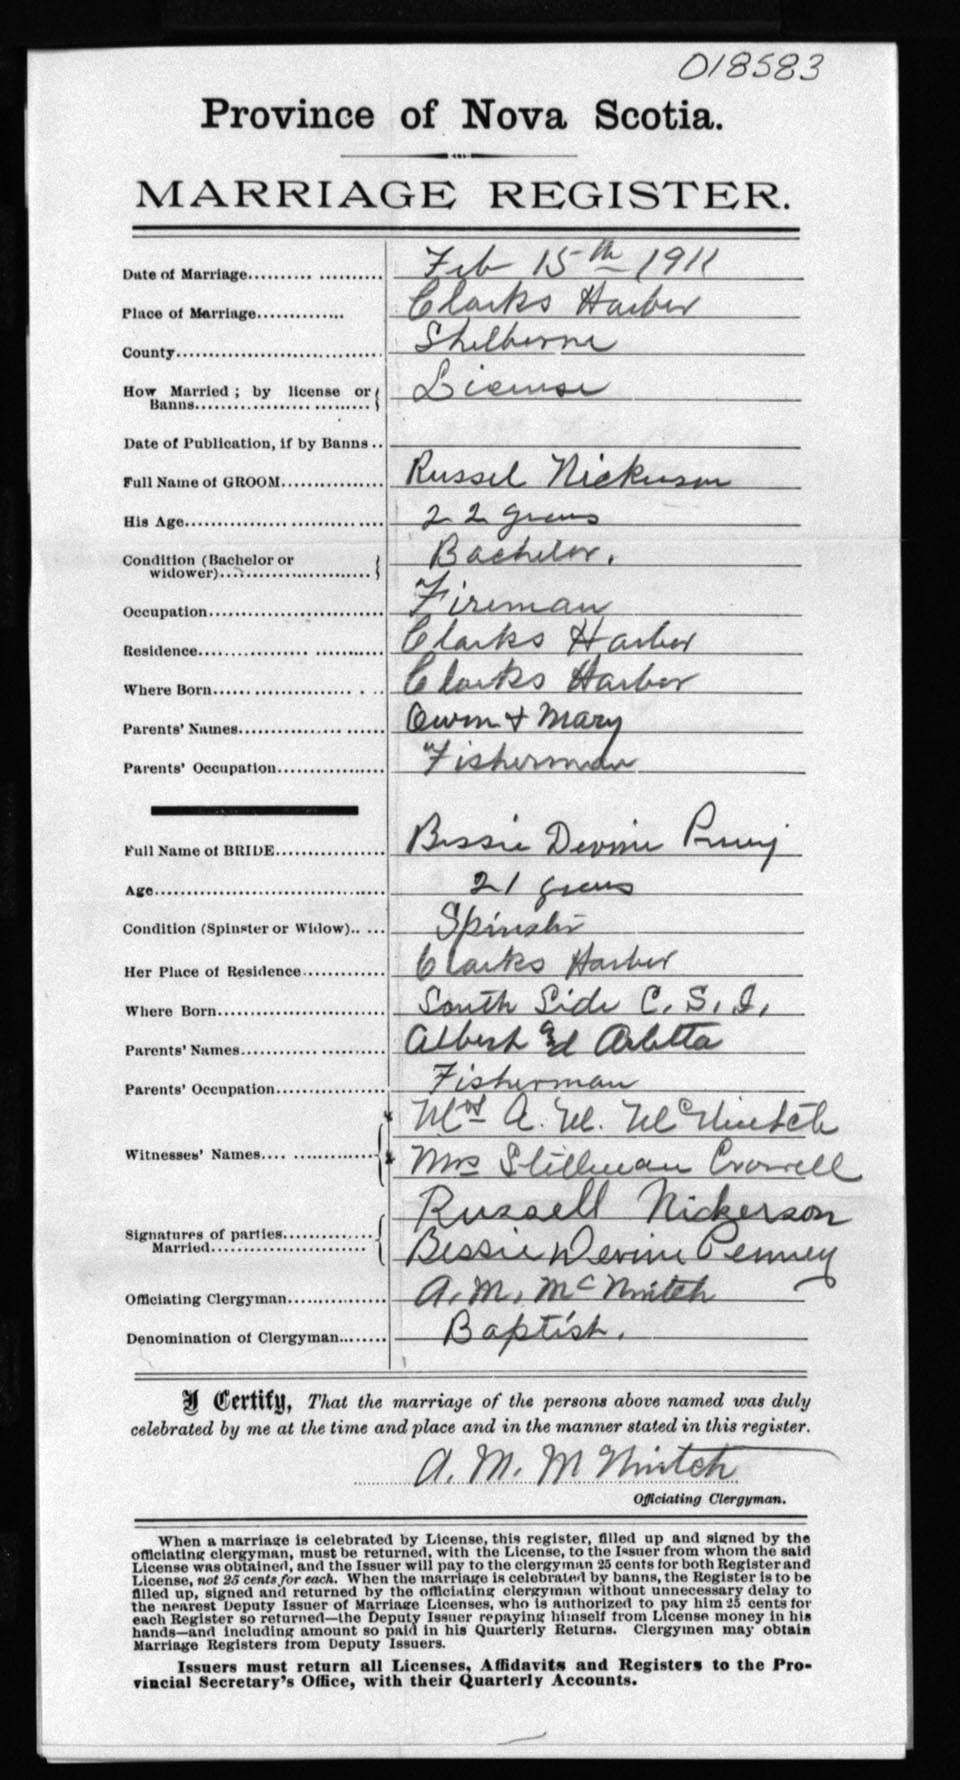 018583
Province of Nova Scotia.
MARRIAGE REGISTER.
Date of Marriage.......... ........... Feb 15th 1911
Place of Marriage.............. Clarks Harber
County................................ Shelburne
How Married ; by license or License
Banns.................. ..........
Date of Publication, if by Banns ..
Full Name of GROOM................ Russel Nickerson
His Age............................... 22 years
Condition (Bachelor or Bachelor.
widower).......................
Occupation........................... Fireman
Residence................ ........... Clarks Harber
Where Born...... ................ . .. Clarks Harber
Parents' Names............... ........ Owen & Mary
Parents' Occupation................. Fisherman
Full Name of BRIDE................. Bessie Devine Penney
Age..................................... 21 years
Condition (Spinster or Widow).. ... Spinster
Her Place of Residence............. Clarks Harber
Where Born............................ South Side C. S. I.
Parents' Names............ ........... Albert and Arletta
Parents' Occupation................. Fisherman
Mrs A. M. McNintch
Witnesses' Names.... .............. Mrs Stillman Crowell
Russell Nickerson
Signatures of parties..............
Married.......................... Bessie Devine Penney
Officiating Clergyman............... A. M. McNintch
Denomination of Clergyman........ Baptist.
I Certify, That the marriage of the persons above named was duly
celebrated by me at the time and place and in the manner stated in this register.
A. M. McNintch
Officiating Clergyman.
When a marriage is celebrated by License, this register, filled up and signed by the
officiating clergyman, must be returned, with the License, to the Issuer from whom the said
License was obtained, and the Issuer will pay to the clergyman 25 cents for both Register and
License, not 25 cents for each. When the marriage is celebrated by banns, the Register is to be
filled up, signed and returned by the officiating clergyman without unnecessary delay to
the nearest Deputy Issuer of Marriage Licenses, who is authorized to pay him 25 cents for
each Register so returned—the Deputy Issuer repaying himself from License money in his
hands—and including amount so paid in his Quarterly Returns. Clergymen may obtain
Marriage Registers from Deputy Issuers.
Issuers must return all Licenses, Affidavits and Registers to the Pro-
vincial Secretary's Office, with their Quarterly Accounts.